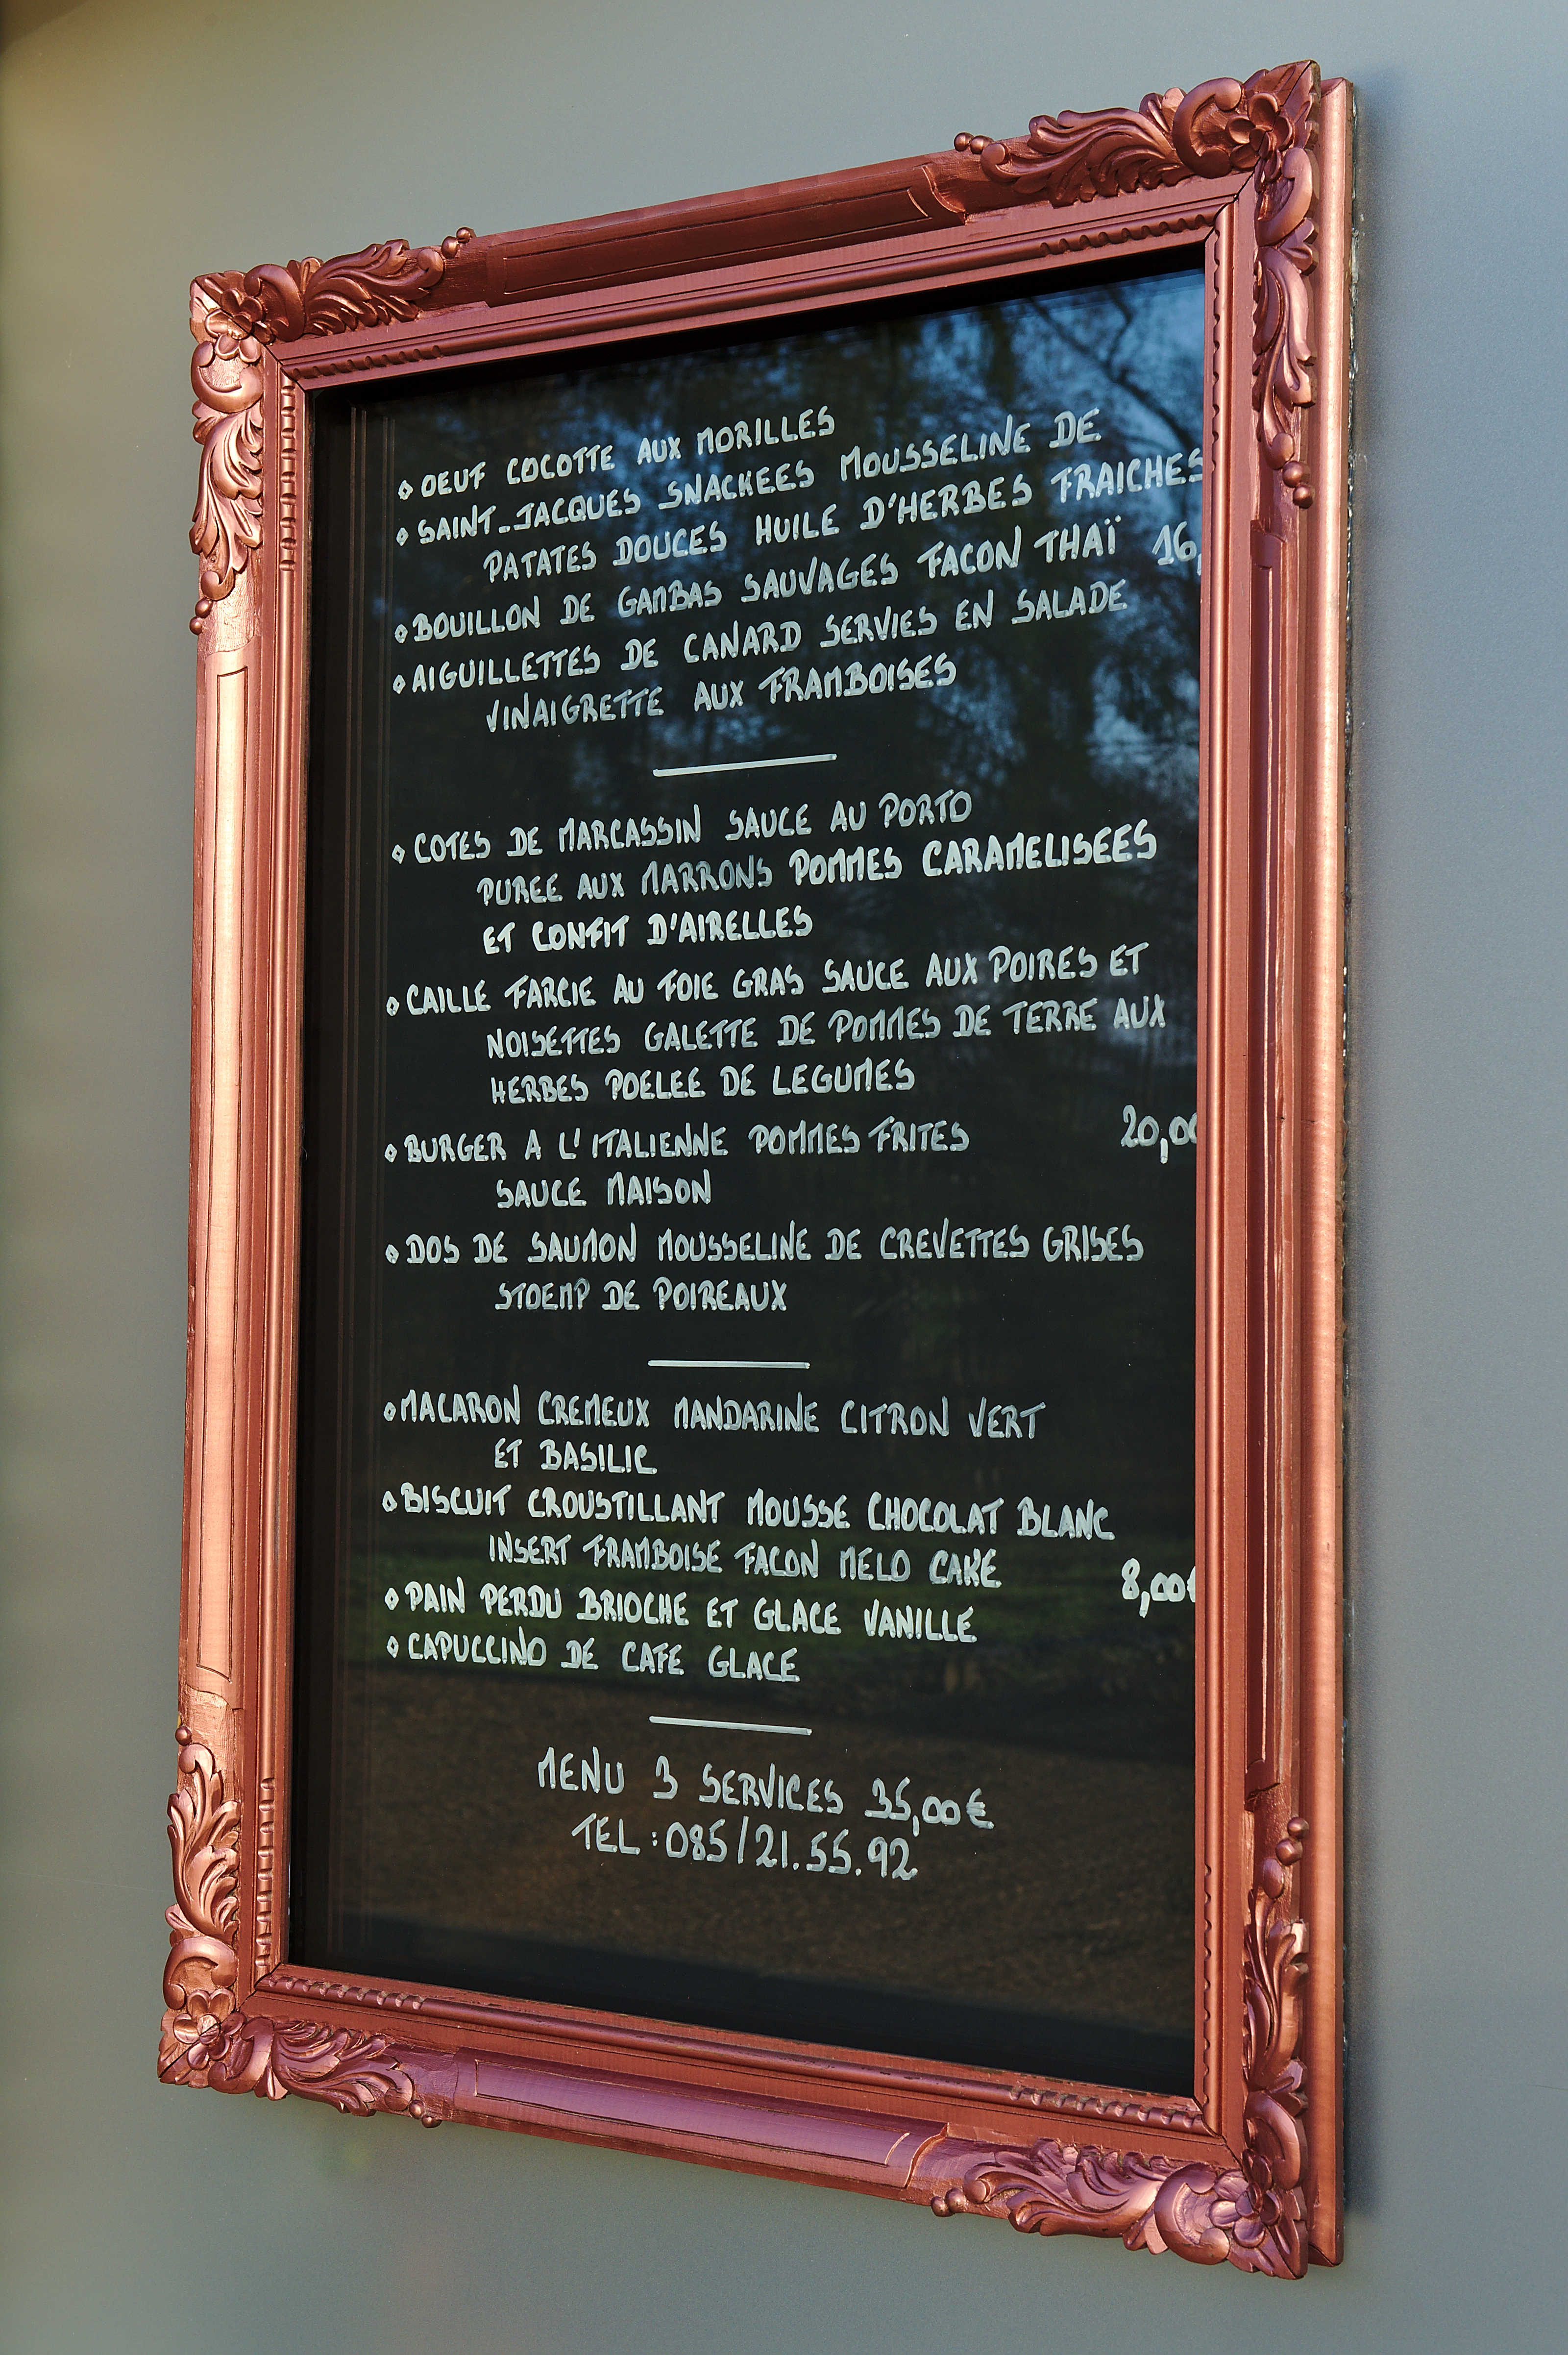 OEUF COCOTTE AUX MORILLES
SAINT-JACQUES SNACKEES MOUSSELINE DE
PATATES DOUCES HUILE D'HERBES FRAICHES
BOUILLON DE GAMBAS SAUVAGES FACON THAÏ 16,
AIGUILLETTES DE CANARD SERVIES EN SALADE
VINAIGRETTE AUX FRAMBOISES
COTES DE MARCASSIN SAUCE AU PORTO
PUREE AUX MARRONS POMMES CARAMELISEES
ET CONFIT D'AIRELLES
CAILLE FARCIE AU FOIE GRAS SAUCE AUX POIRES ET
NOISETTES GALETTE DE POMMES DE TERRE AUX
HERBES POELEE DE LEGUMES
BURGER A L'ITALIENNE POMMES FRITES 20,00
SAUCE MAISON
DOS DE SAUMON MOUSSELINE DE CREVETTES GRISES
STOEMP DE POIREAUX
MACARON CREMEUX MANDARINE CITRON VERT
ET BASILIC
BISCUIT CROUSTILLANT MOUSSE CHOCOLAT BLANC
INSERT FRAMBOISE FACON MELO CAKE 8,00€
PAIN PERDU BRIOCHE ET GLACE VANILLE
CAPUCCINO DE CAFE GLACE
MENU 3 SERVICES 35,00€
TEL : 085/21.55.92